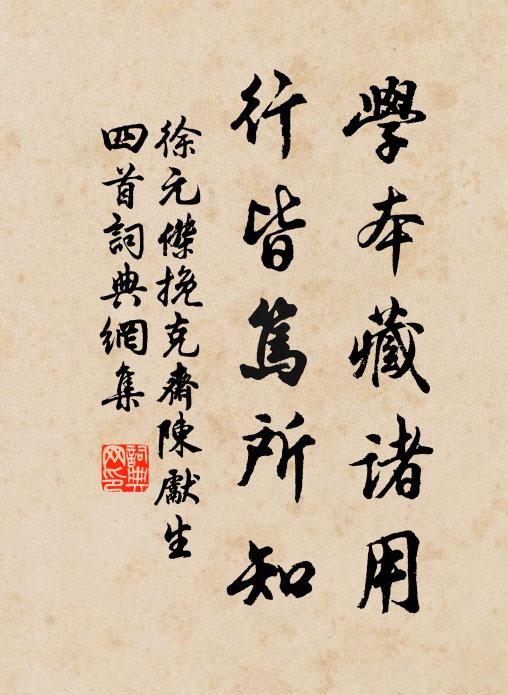 學本藏諸用
行皆篤所知
徐元傑挽克齋陳獻生
四首詞典網集
詞典
网印